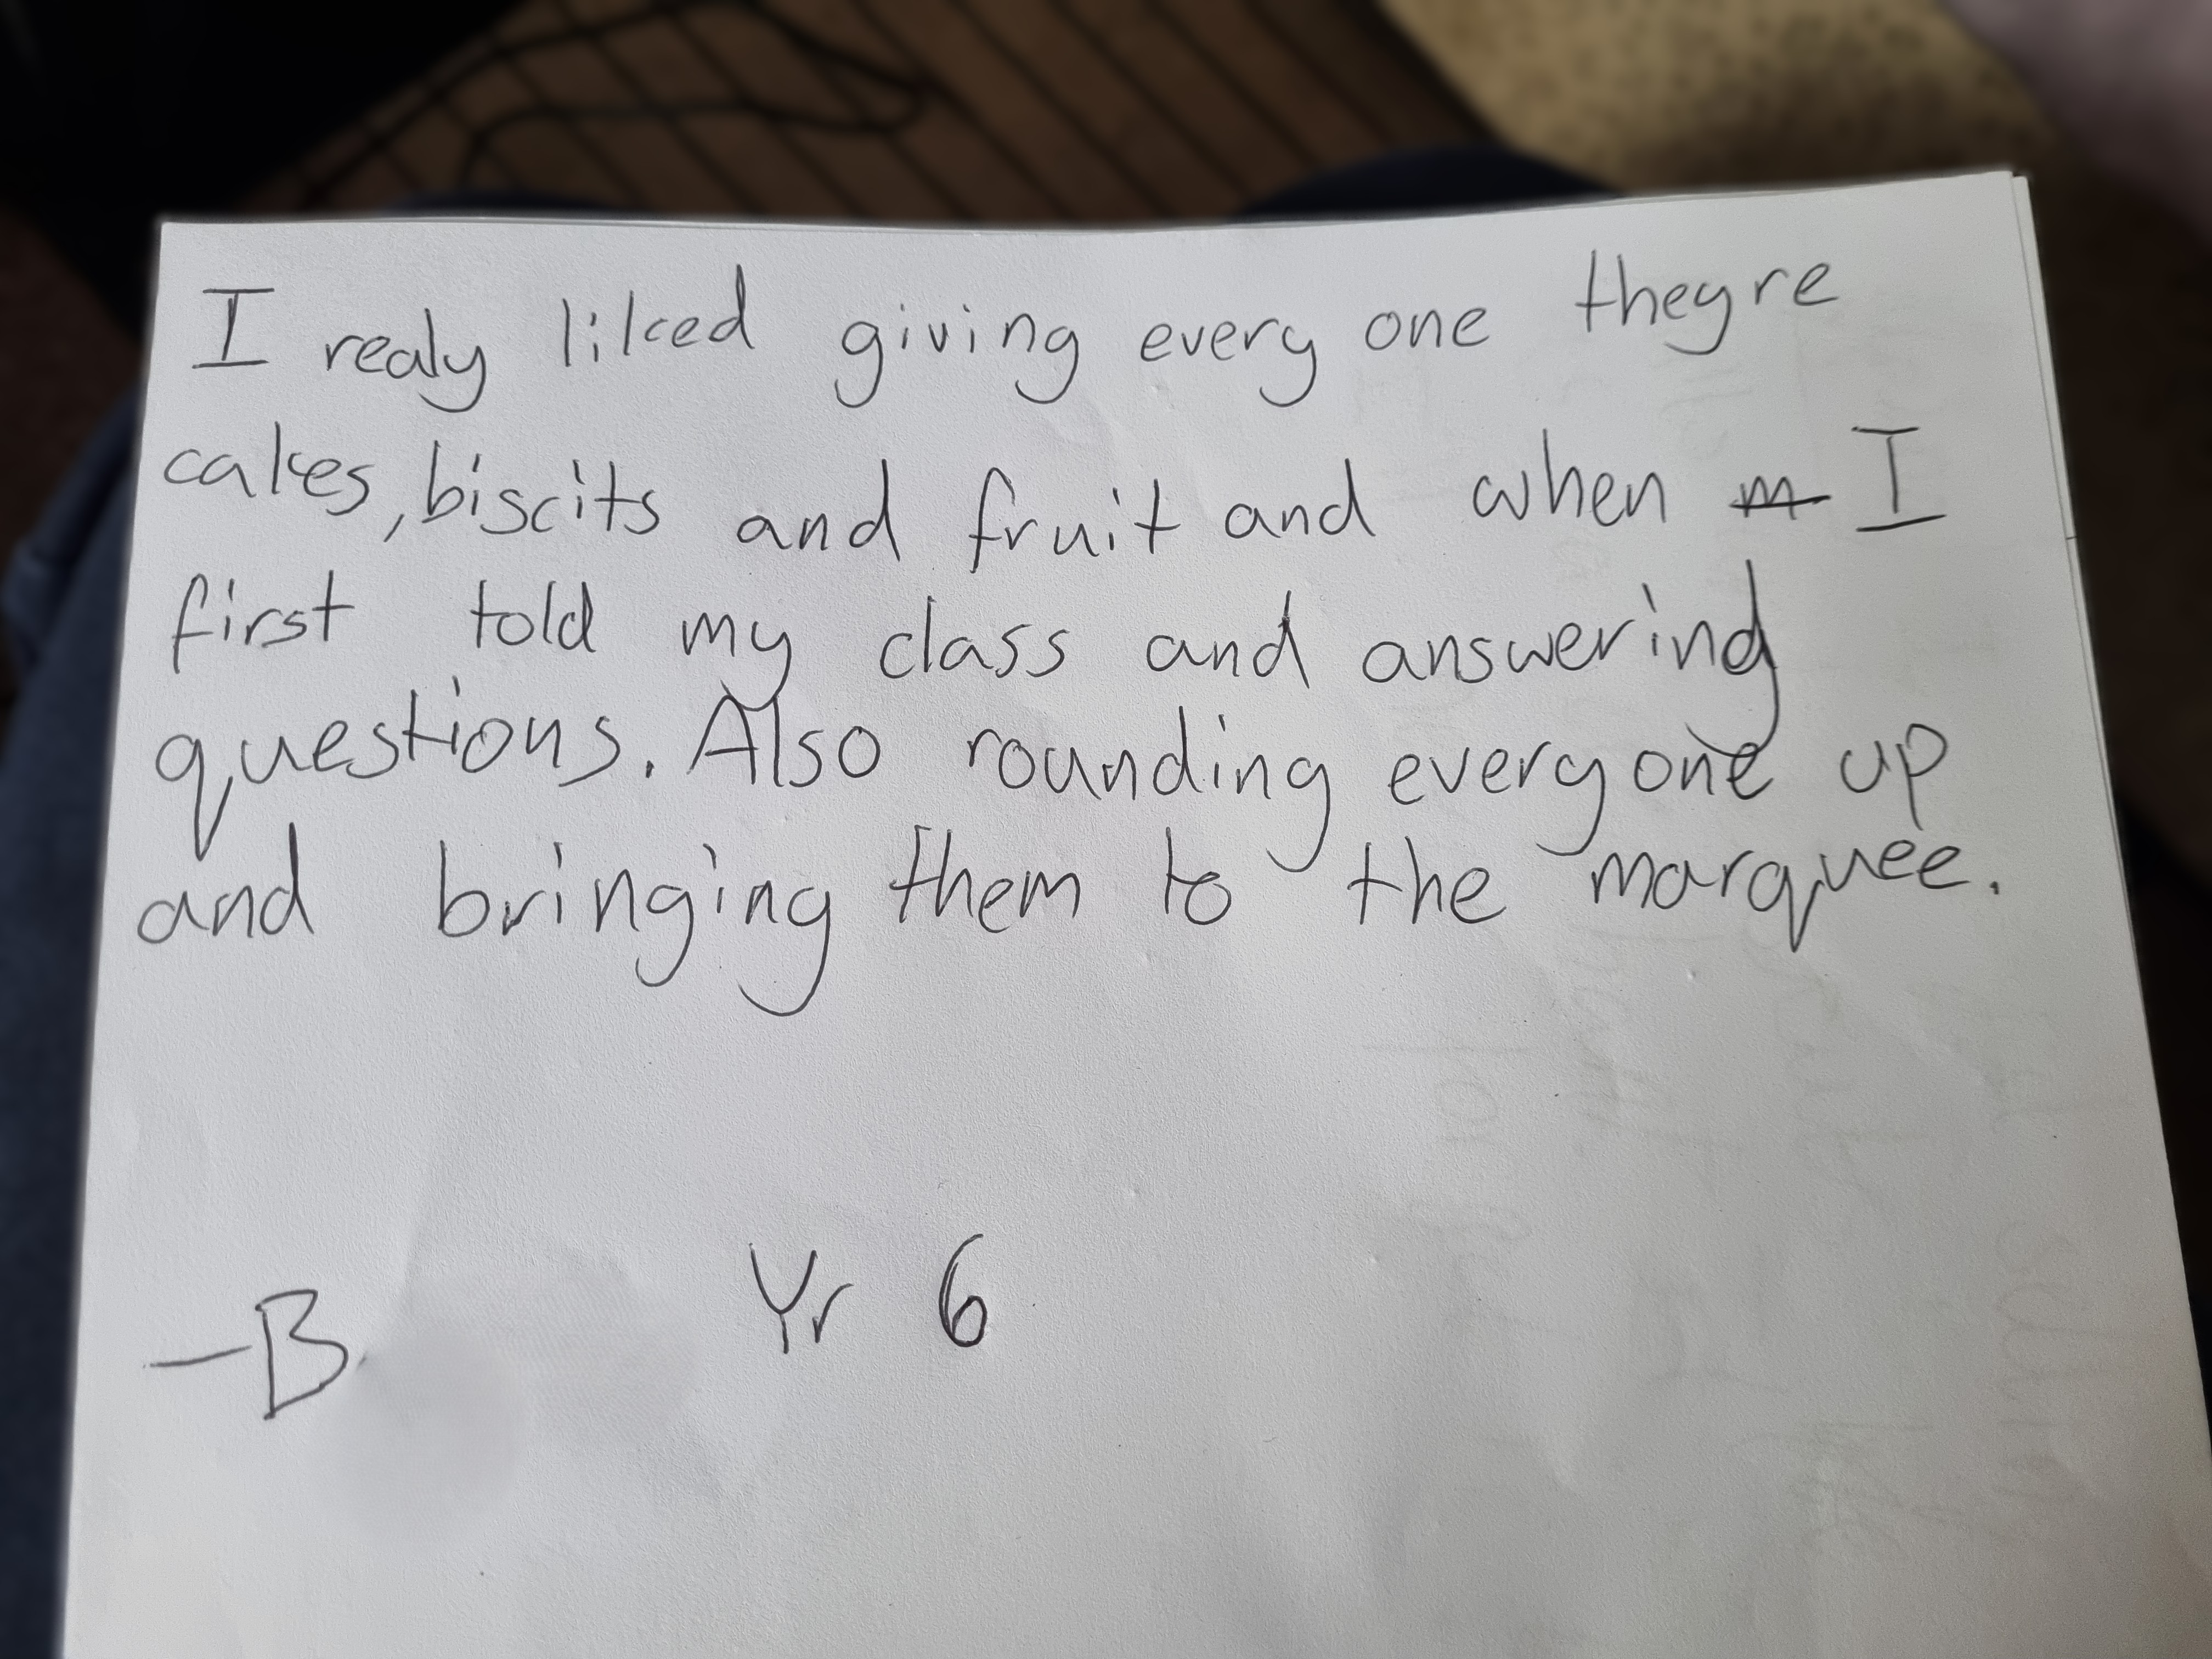 I realy liked giving every one theyre
cakes, biscits and fruit and when m I
first told my class and answering
questions. Also rounding everyone up
and bringing them to the marquee.
–B
Yr 6